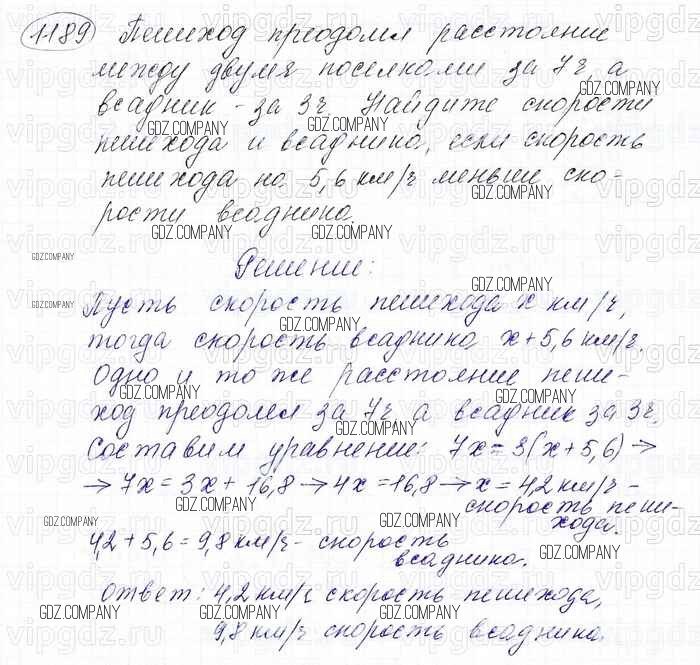 1189 Пешеход преодолел расстояние
между двумя поселками за 7ч, а
всадник - за 3ч. Найдите скорости
пешехода и всадника, если скорость
пешехода на 5,6 км/ч меньше ско-
рости всадника.
Решение:
Пусть скорость пешехода x км/ч,
тогда скорость всадника x+5,6 км/ч.
Одно и то же расстояние пеше-
ход преодолел за 7ч, а всадник за 3ч.
Составим уравнение: 7x=3(x+5,6) →
→ 7x = 3x + 16,8 → 4x = 16,8 → x = 4,2 км/ч -
скорость пеше-
хода.
4,2 + 5,6 = 9,8 км/ч - скорость
всадника.
Ответ: 4,2 км/ч скорость пешехода,
9,8 км/ч скорость всадника.